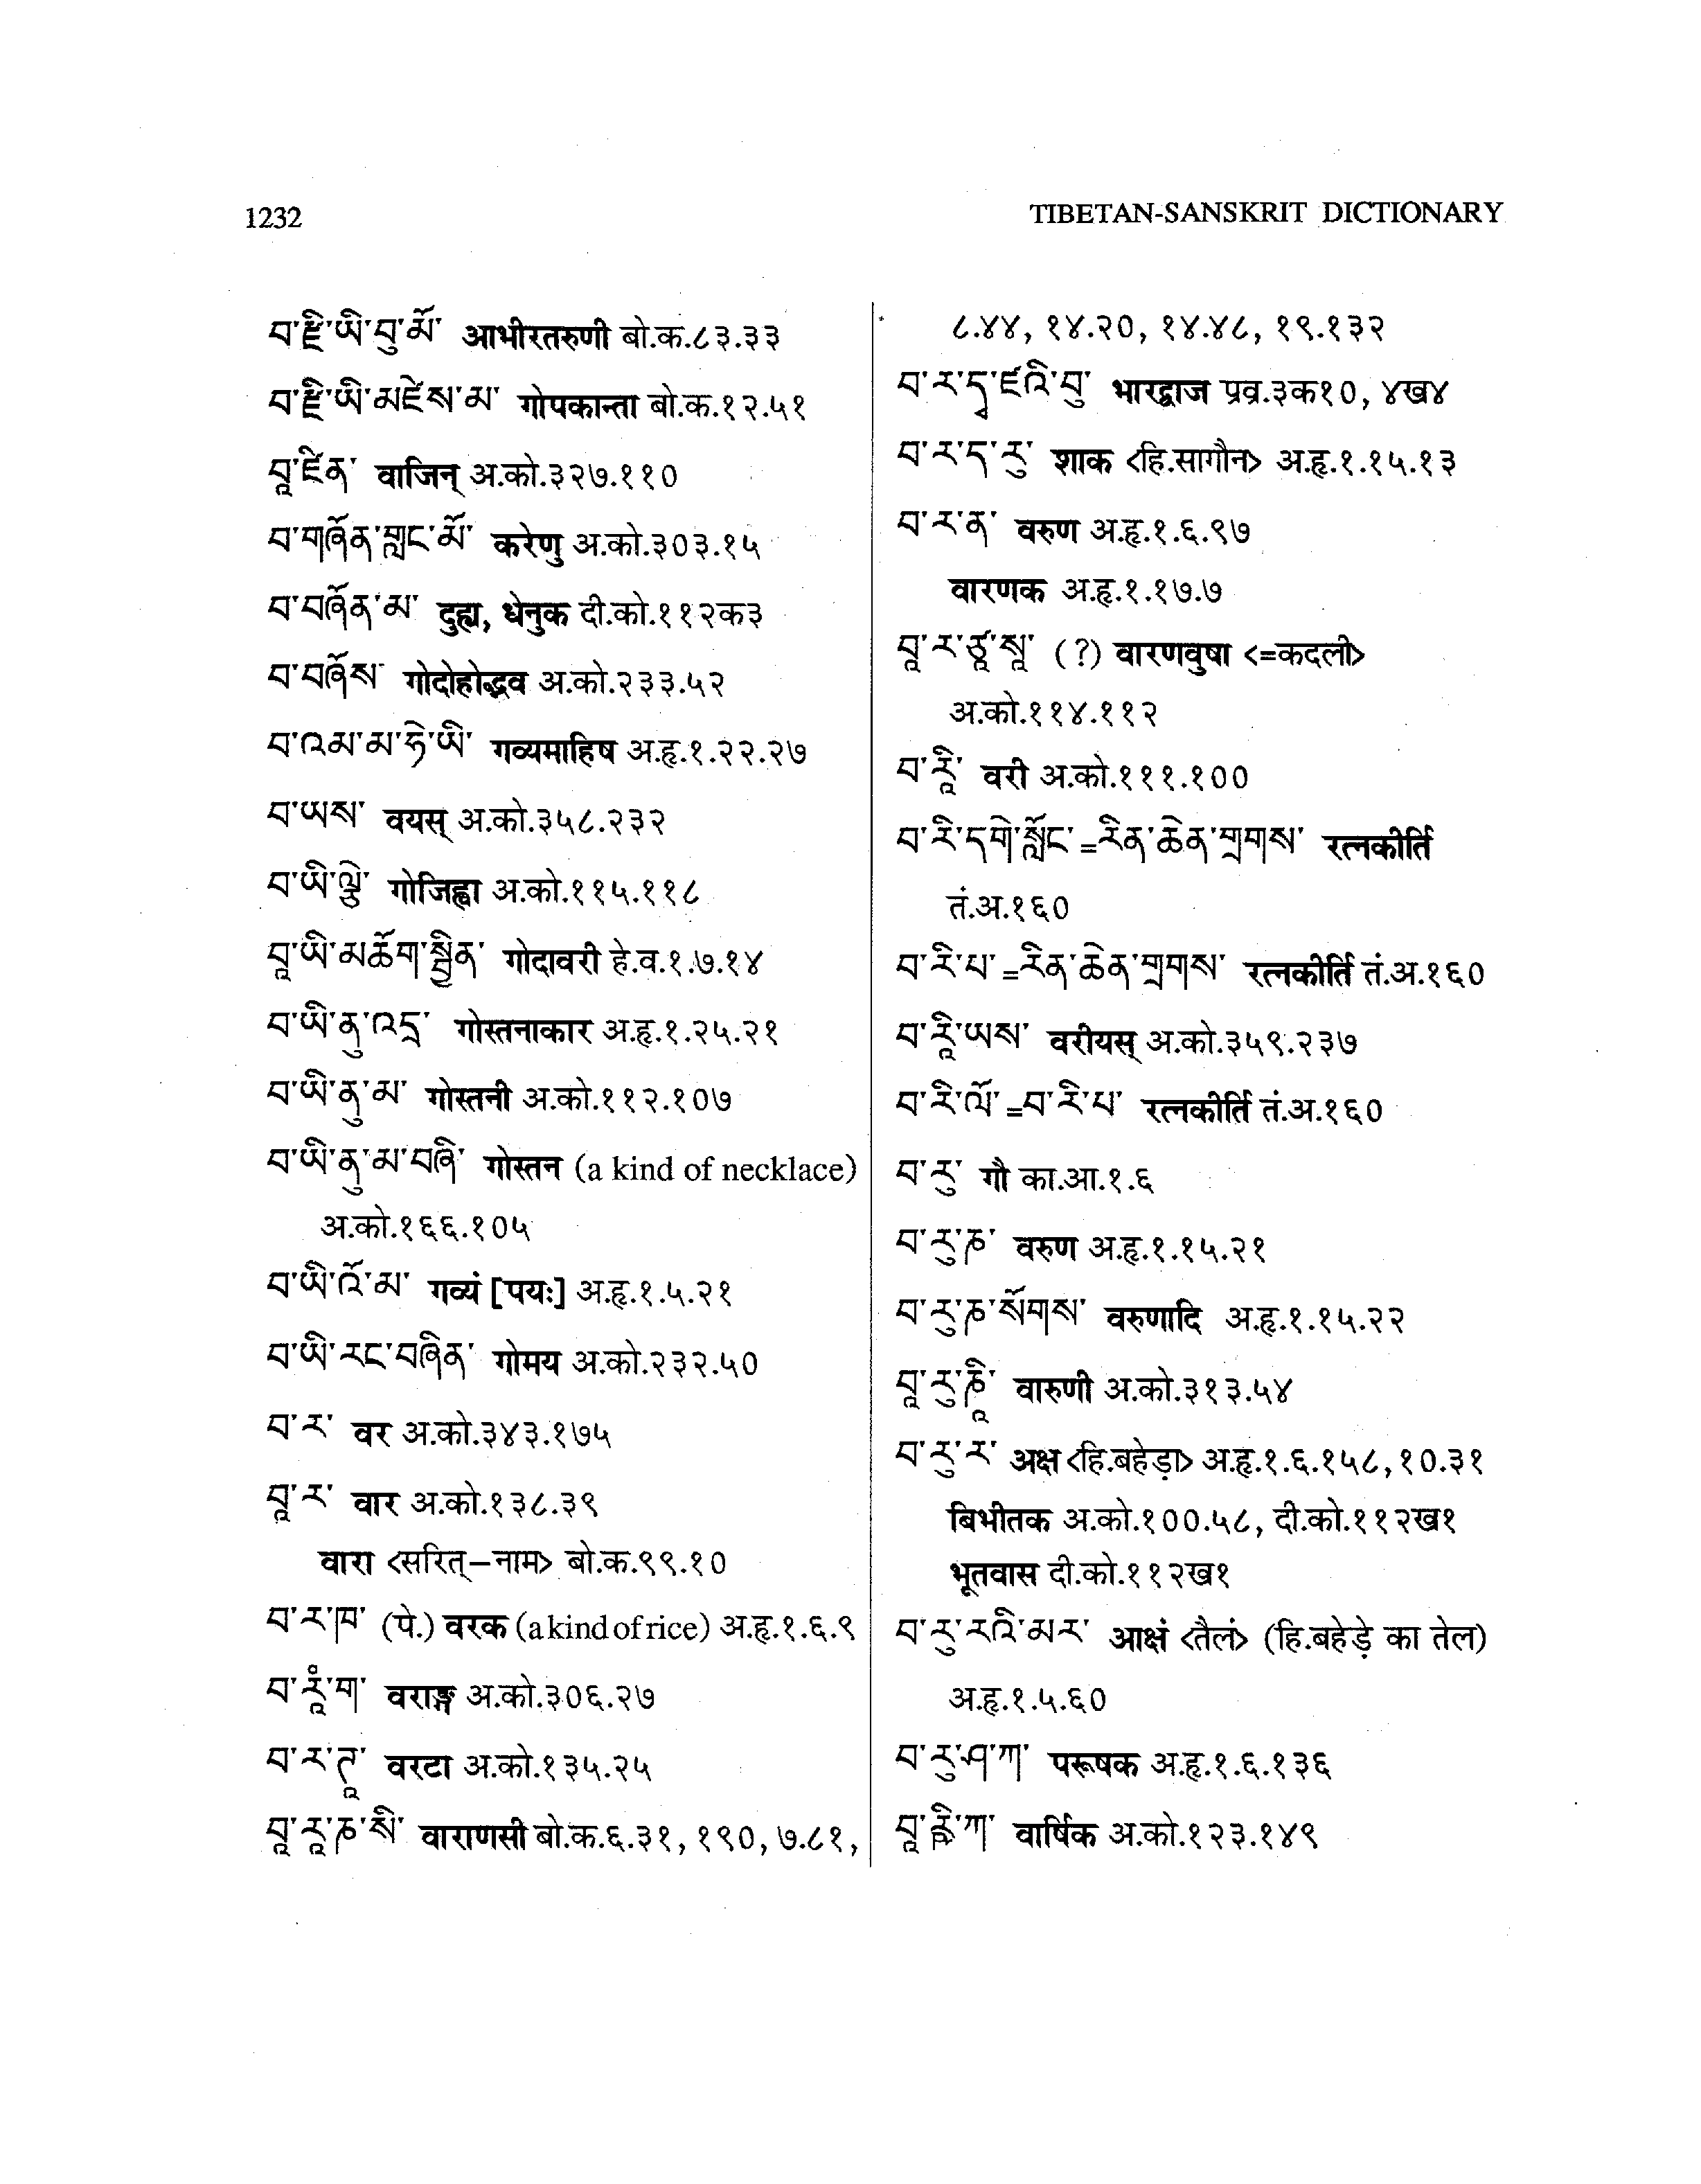 1232
TIBETAN-SANSKRIT DICTIONARY
བ་རྫི་ཡི་བུ་མོ་ आभीरतरुणी बो.क.८३.३३
བ་རྫི་ཡི་མཛེས་མ་ गोपकान्ता बो.क.१२.५१
བཱ་ཛིན་ वाजिन् अ.को.३२७.११०
བ་གཞོན་གླང་མོ་ करेणु अ.को.३०३.१५
བ་བཞོན་མ་ दुह्य, धेनुक दी.को.११२क३
བ་བཞོས་ गोदोहोद्भव अ.को.२३३.५२
བ་འམ་མ་ཧེ་ཡི་ गव्यमाहिष अ.हृ.१.२२.२७
བ་ཡས་ वयस् अ.को.३५८.२३२
བ་ཡི་ལྕེ་ गोजिह्वा अ.को.११५.११८
བཱ་ཡི་མཆོག་སྦྱིན་ गोदावरी हे.व.१.७.१४
བ་ཡི་ནུ་འདྲ་ गोस्तनाकार अ.हृ.१.२५.२१
བ་ཡི་ནུ་མ་ गोस्तनी अ.को.११२.१०७
བ་ཡི་ནུ་མ་བཞི་ गोस्तन (a kind of necklace)
अ.को.१६६.१०५
བ་ཡི་འོ་མ་ गव्यं [पयः] अ.हृ.१.५.२१
བ་ཡི་རང་བཞིན་ गोमय अ.को.२३२.५०
བ་ར་ वर अ.को.३४३.१७५
བཱ་ར་ वार अ.को.१३८.३९
वारा <सरित्–नाम> बो.क.९९.१०
བ་ར་ཁ་ (पे.) वरक (a kind of rice) अ.हृ.१.६.९
བ་རཱཾ་ག་ वराङ्ग अ.को.३०६.२७
བ་ར་ཊཱ་ वरटा अ.को.१३५.२५
བཱ་རཱ་ཎ་སི་ वाराणसी बो.क.६.३१, १९०, ७.८१,
८.४४, १४.२०, १४.४८, १९.१३२
བ་ར་དྭ་ཛའི་བུ་ भारद्वाज प्रव्र.३क१०, ४ख४
བ་ར་ད་རུ་ शाक <हि.सागौन> अ.हृ.१.१५.१३
བ་ར་ན་ वरुण अ.हृ.१.६.९७
वारणक अ.हृ.१.१७.७
བཱ་ར་ཙཱུ་སཱ་ (?) वारणवुषा <=कदली>
अ.को.११४.११२
བ་རཱི་ वरी अ.को.१११.१००
བ་རི་དགེ་སློང་=རིན་ཆེན་གྲགས་ रत्नकीर्ति
तं.अ.१६०
བ་རི་པ་=རིན་ཆེན་གྲགས་ रत्नकीर्ति तं.अ.१६०
བ་རཱི་ཡས་ वरीयस् अ.को.३५९.२३७
བ་རི་ལོ་=བ་རི་པ་ रत्नकीर्ति तं.अ.१६०
བ་རུ་ गौ का.आ.१.६
བ་རུ་ཎ་ वरुण अ.हृ.१.१५.२१
བ་རུ་ཎ་སོགས་ वरुणादि अ.हृ.१.१५.२२
བཱ་རུ་ཎཱི་ वारुणी अ.को.३१३.५४
བ་རུ་ར་ अक्ष <हि.बहेड़ा> अ.हृ.१.६.१५८,१०.३१
बिभीतक अ.को.१००.५८, दी.को.११२ख१
भूतवास दी.को.११२ख१
བ་རུ་རའི་མར་ आक्षं <तैलं> (हि.बहेड़े का तेल)
अ.हृ.१.५.६०
བ་རུ་ཤ་ཀ་ परूषक अ.हृ.१.६.१३६
वार्षिक अ.को.१२३.१४९